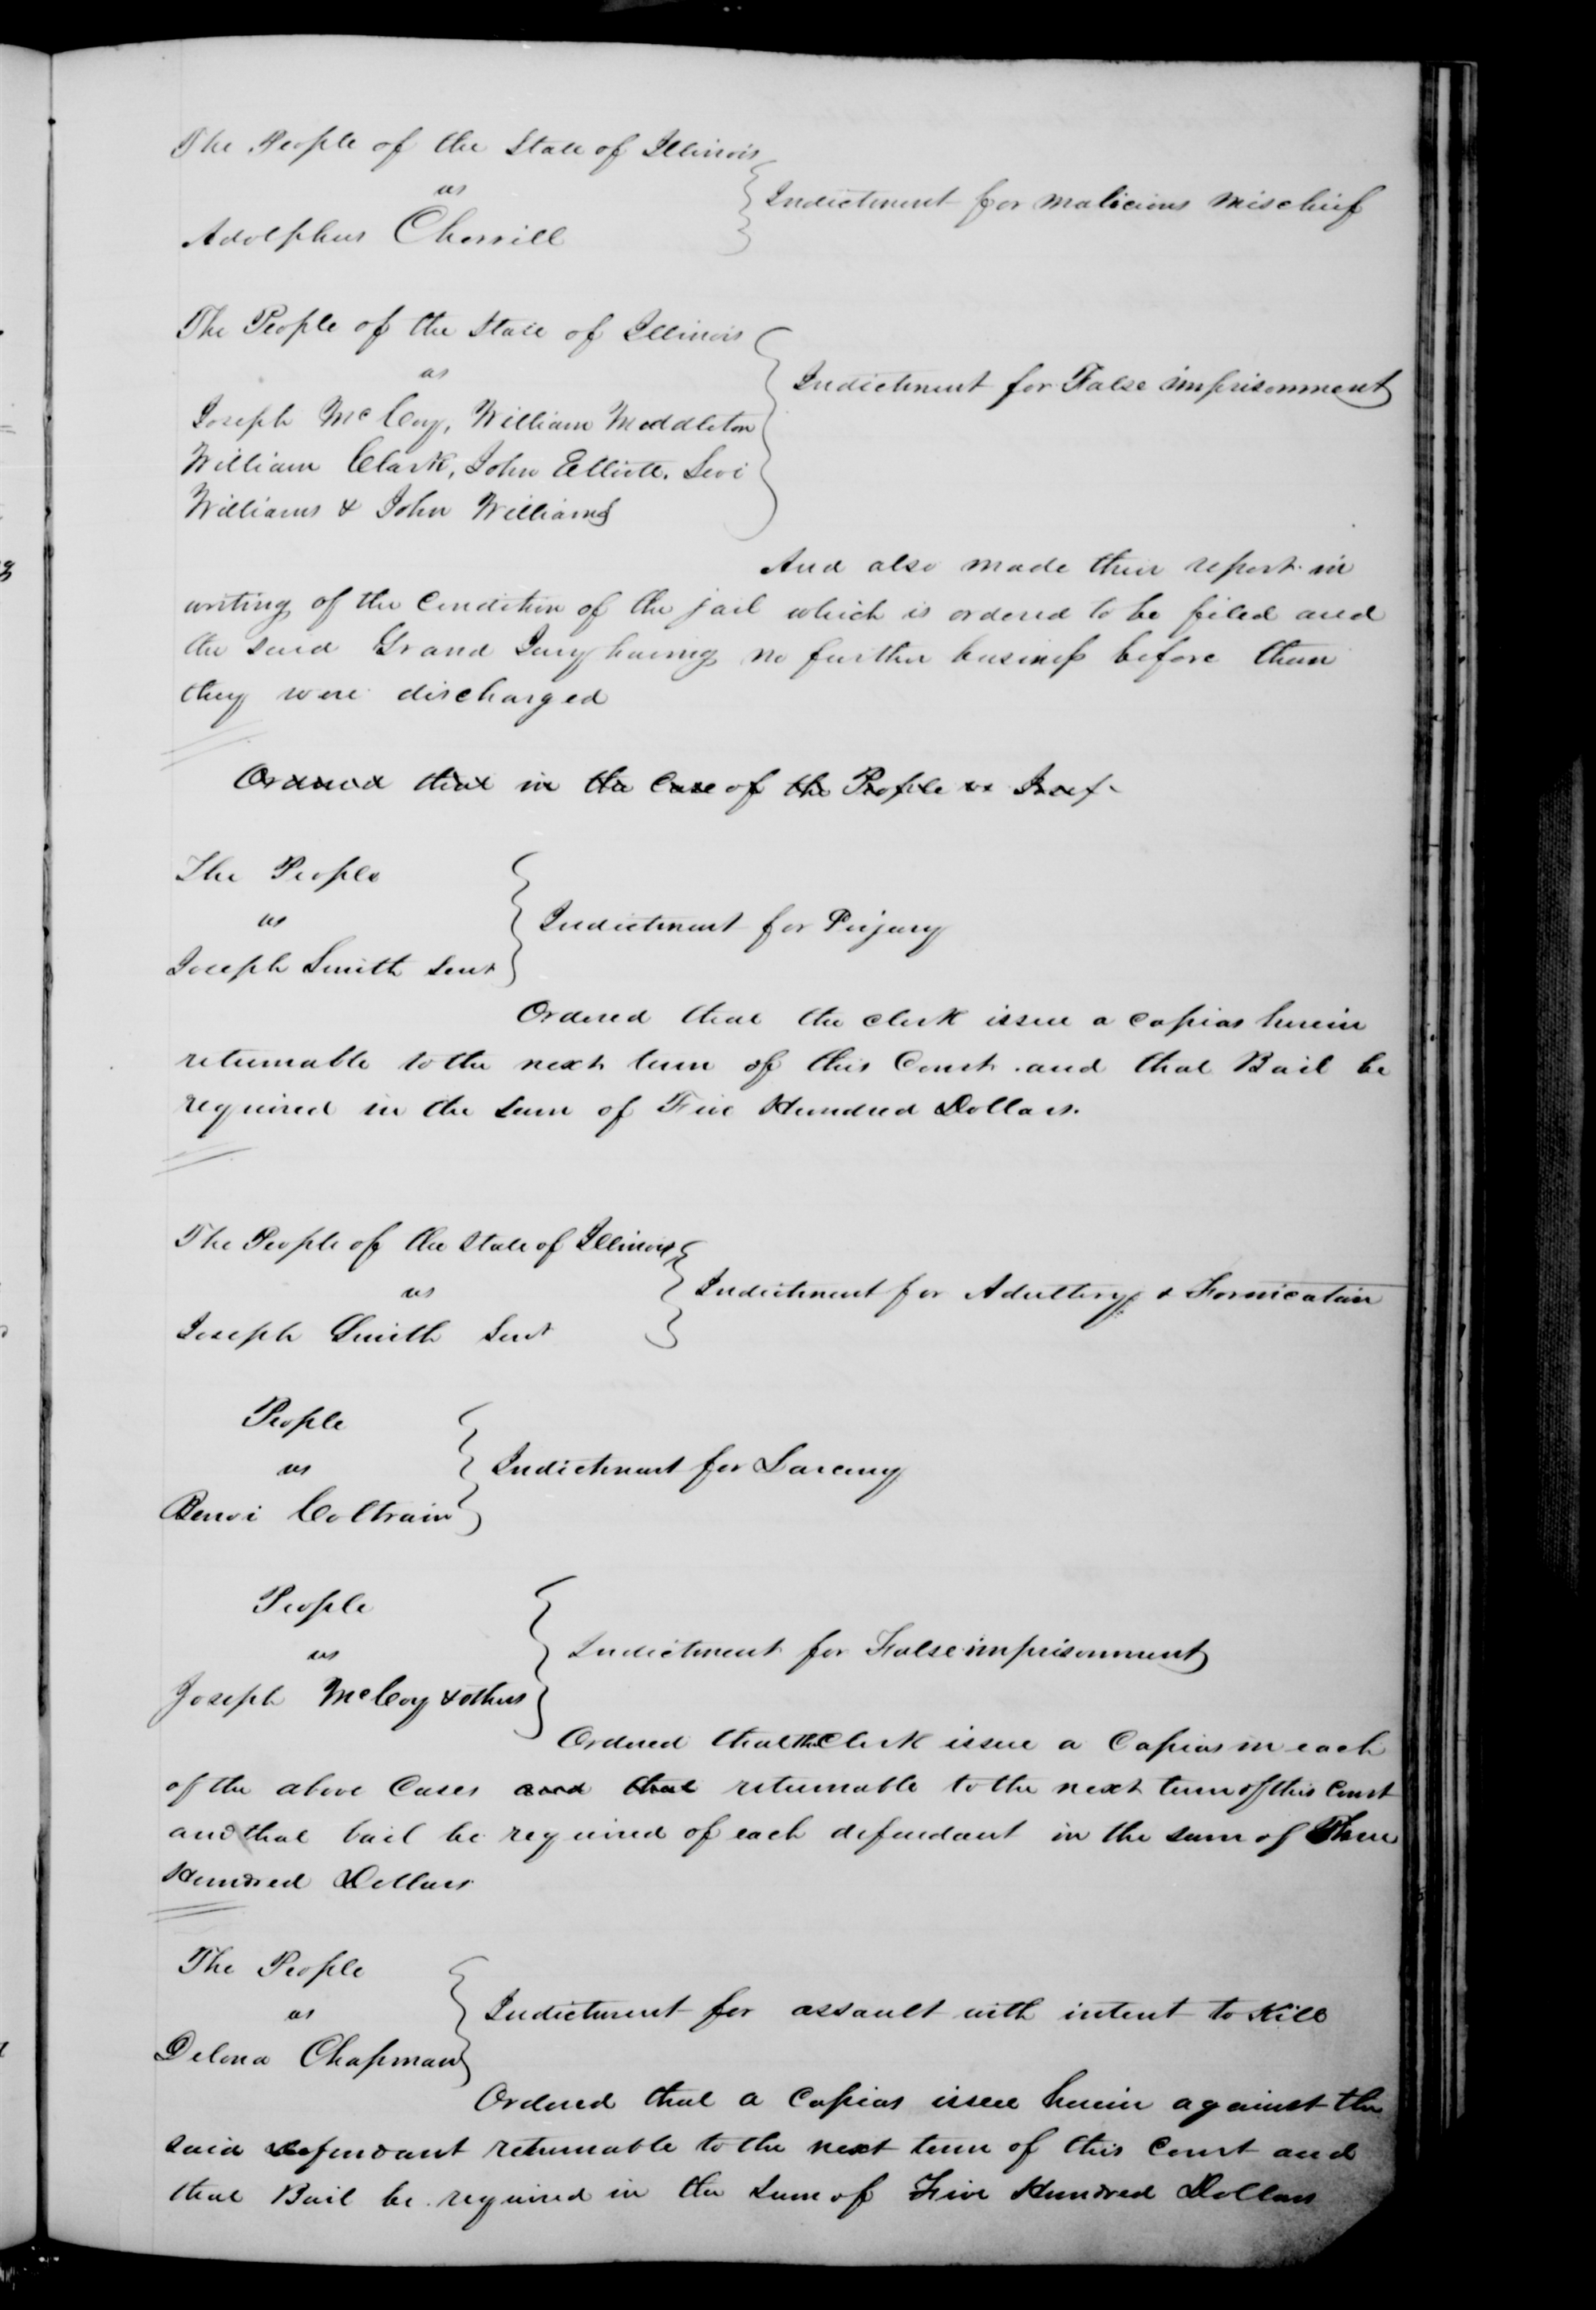 The People of the State of Illinois
vs
Adolphus Cherrill
Indictment for malicious mischief
The People of the State of Illinois
vs
Joseph McCoy, William Middleton
William Clark, John Elliott, Levi
Williams & John Williams
Indictment for False imprisonment
And also made their report in
writing of the Condition of the jail which is ordered to be filed and
the said Grand Jury having no further business before them
they were discharged
Ordered that in the Case of the People vs Josep
The People
vs
Joseph Smith Senr
Indictment for Perjury
Ordered that the clerk issue a capias herein
returnable to the next term of this Court and that Bail be
required in the Sum of Five Hundred Dollars.
The People of the State of Illinois
vs
Joseph Smith Senr
Indictment for Adultery & Fornication
People
vs
Coltrain
Indictment for Larceny
People
vs
Joseph McCoy & others
Indictment for False imprisonment
Ordered that the Clerk issue a Capias in each
of the above Cases and that returnable to the next term of this Court
and that bail be required of each defendant in the sum of Three
Hundred Dollars
The People
vs
Chapman
Indictment for assault with intent to Kill
Ordered that a Capias issue herein against the
said defendant returnable to the next term of this Court and
that Bail be required in the Sum of Five Hundred Dollars